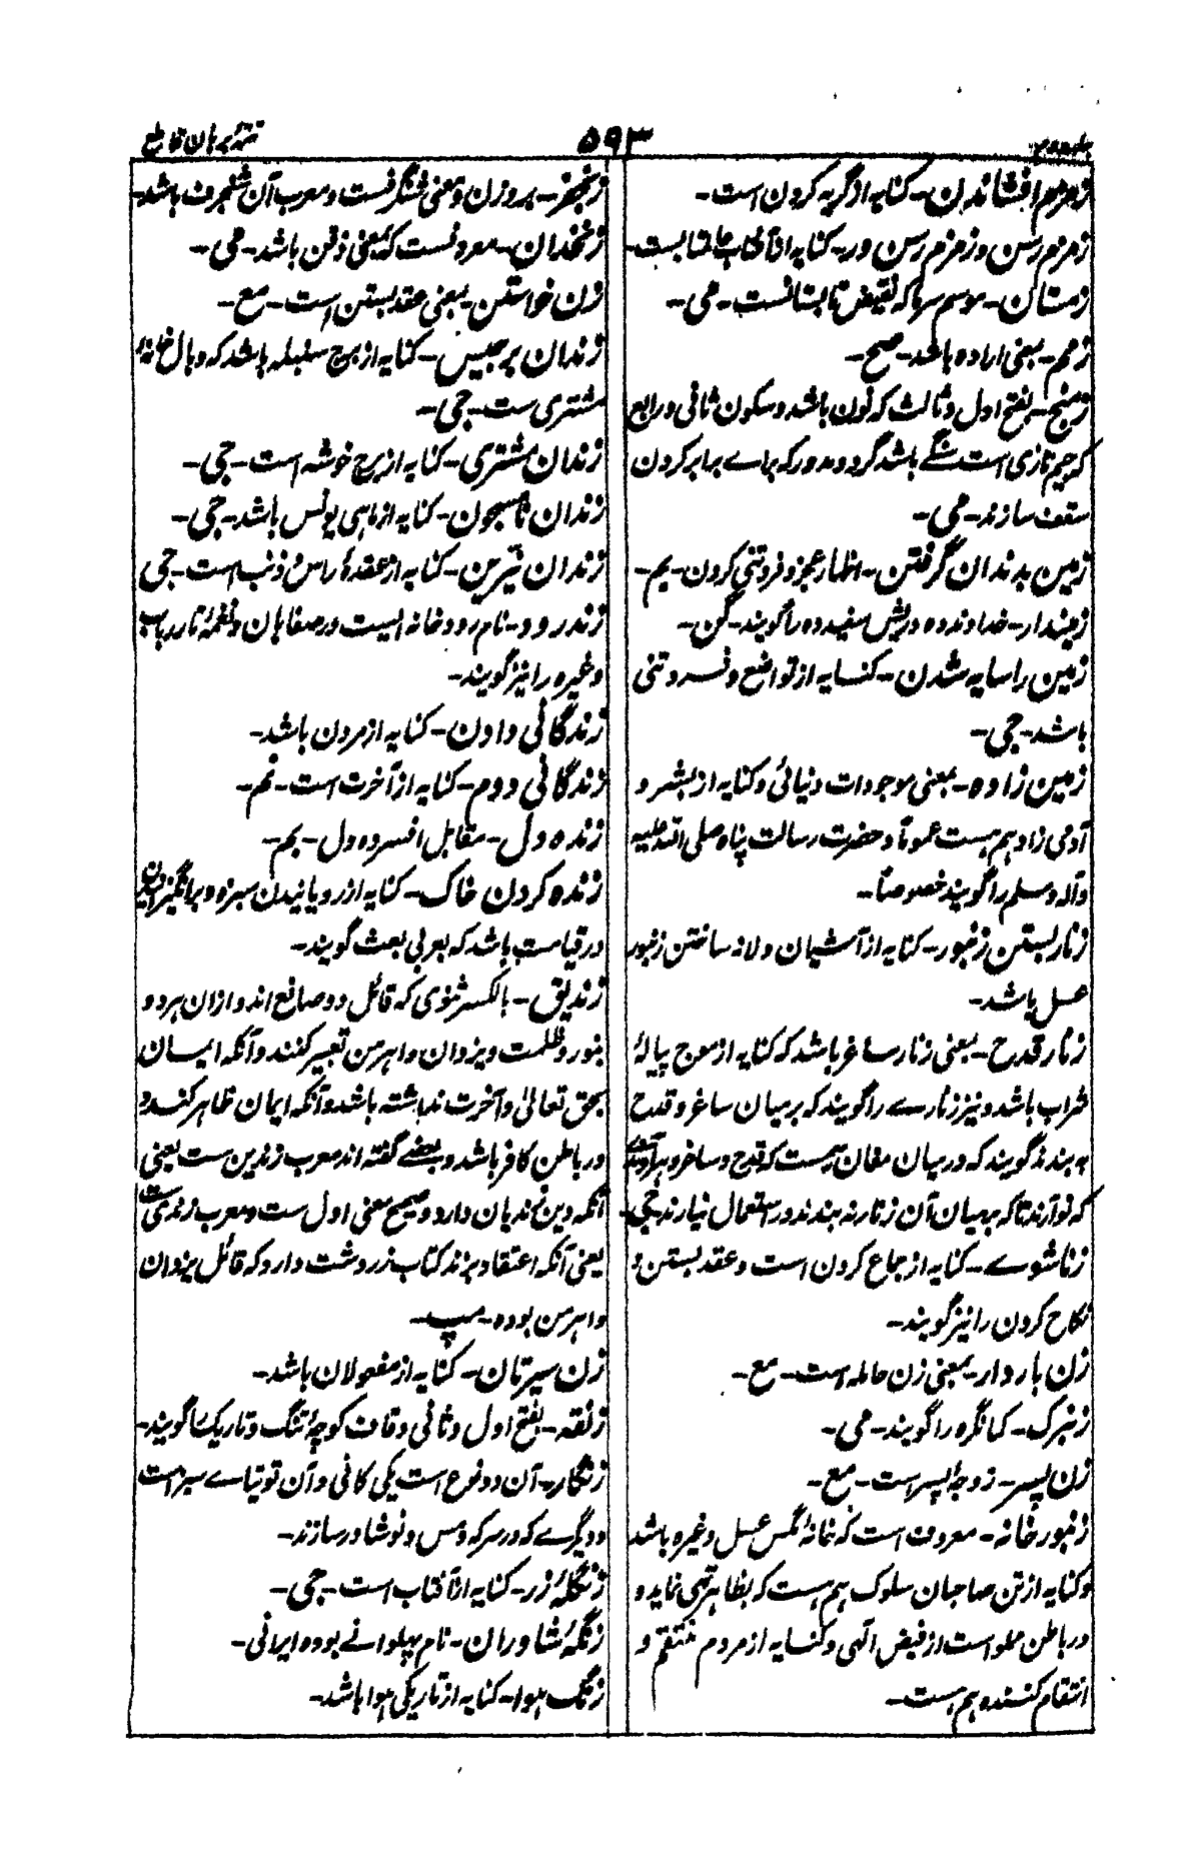 جلد دوم
۵۹۳
تتمۂ برہان قاطع
زمزم افشاندن۔ کنایه از گریه کردن است۔
زمزم رسن و زمزم رسن ور۔ کنایه از آفتاب عالمتابست۔
زمستان۔ موسم سرما که نقیض تابستانست۔ می۔
زمم۔ بمعنی اراده باشد۔ صح۔
زمنج۔ بفتح اول و ثالث که نون باشد و سکون ثانی و رابع
که جیم تازی است سنگے باشد گرد و مدور که براے برابر کردن
سقف سازند۔ می۔
زمین بدندان گرفتن۔ اظهار عجز و فروتنی کردن۔ بم۔
زمیندار۔ خداوند ده و ریش سفید ده را گویند۔ گن۔
زمین را سایه شدن۔ کنایه از تواضع و فروتنی
باشد۔ جی۔
زمین زاده۔ بمعنی موجودات دنیائی و کنایه از بشر و
آدمی زاد هم هست عموماً و حضرت رسالت پناه صلی الله علیه
وآله وسلم را گویند خصوصاً۔
زنار بستن زنبور۔ کنایه از آشیان و لانه ساختن زنبور
عسل باشد۔
زنار قدح۔ یعنی زنار ساغر باشد که کنایه از موج پیالۂ
شراب باشد و نیز زنارے را گویند که بر میان ساغر و قدح
به بندند گویند که در میان مغان رسمست که قدح و ساغر و
که نو آرند تا که بمیان آن زنار نه بندند در استعمال نیارند جی۔
زناشوے۔ کنایه از جماع کردن است و عقد بستن و
نکاح کردن را نیز گویند۔
زن باردار۔ بمعنی زن حامله است۔ مع۔
زنبرک۔ کمانگره را گویند۔ می۔
زن پسر۔ زوجۂ پسر است۔ مع۔
زنبور خانه۔ معروف است که خانۂ مگس عسل و غیره باشد
و کنایه از تن صاحبان سلوک هم هست که بظاهر تهی نماید و
در باطن مملو است از فیض الٰهی و کنایه از مردم منتقم و
انتقام کننده هم است۔
زنجفر۔ بروزن و معنی شنگرفست و معرب آن شنجرف باشد۔
زنخدان۔ معروفست که بمعنی ذقن باشد۔ می۔
زن خواستن۔ بمعنی عقد بستن است۔ مع۔
زندان برجیس۔ کنایه از برج سنبله باشد که وبال خانۂ
مشتری ست۔ جی۔
زندان مشتری۔ کنایه از برج خوشه است۔ جی۔
زندان نامسجون۔ کنایه از ماهی یونس باشد۔ جی۔
زندان نیرین۔ کنایه از عقدۂ راس و ذنب است۔ جی
زندرود۔ نام رودخانه ایست در صفاهان و نغمۂ تار رباب
وغیره را نیز گویند۔
زندگانی دادن۔ کنایه از مردن باشد۔
زندگانی دوم۔ کنایه از آخرت است۔ نم۔
زنده دل۔ مقابل افسرده دل۔ بم۔
زنده کردن خاک۔ کنایه از رویانیدن سبزه و برانگیزانیدن
در قیامت باشد که بعربی بعث گویند۔
زندیق۔ بالکسر ثنوی که قائل دو صانع اند و ازان هر دو
بنور و ظلمت و یزدان و اهرمن تعبیر کنند و آنکه ایمان
بحق تعالی و آخرت نداشته باشد و آنکه ایمان ظاهر کند و
در باطن کافر باشد و بعضے گفته اند معرب زندین ست یعنی
آنکه دین زندیان دارد و صحیح معنی اول ست و معرب زندی ست
یعنی آنکه اعتقاد بزند کتاب زردشت دارد که قائل یزدان
و اهرمن بوده۔ مپ۔
زن سیرتان۔ کنایه از مفعولان باشد۔
زنقه۔ بفتح اول و ثانی و قاف کوچۂ تنگ و تاریک را گویند۔
زنگار۔ آن دو نوع است یکی کانی و آن توتیاے سبز است
و دیگرے که در سرکه و مس و نوشادر سازند۔
زنگلۂ زر۔ کنایه از آفتاب است۔ جی۔
زنگۂ شاوران۔ نام پهلوانے بوده ایرانی۔
زنگ هوا۔ کنایه از تاریکی هوا باشد۔